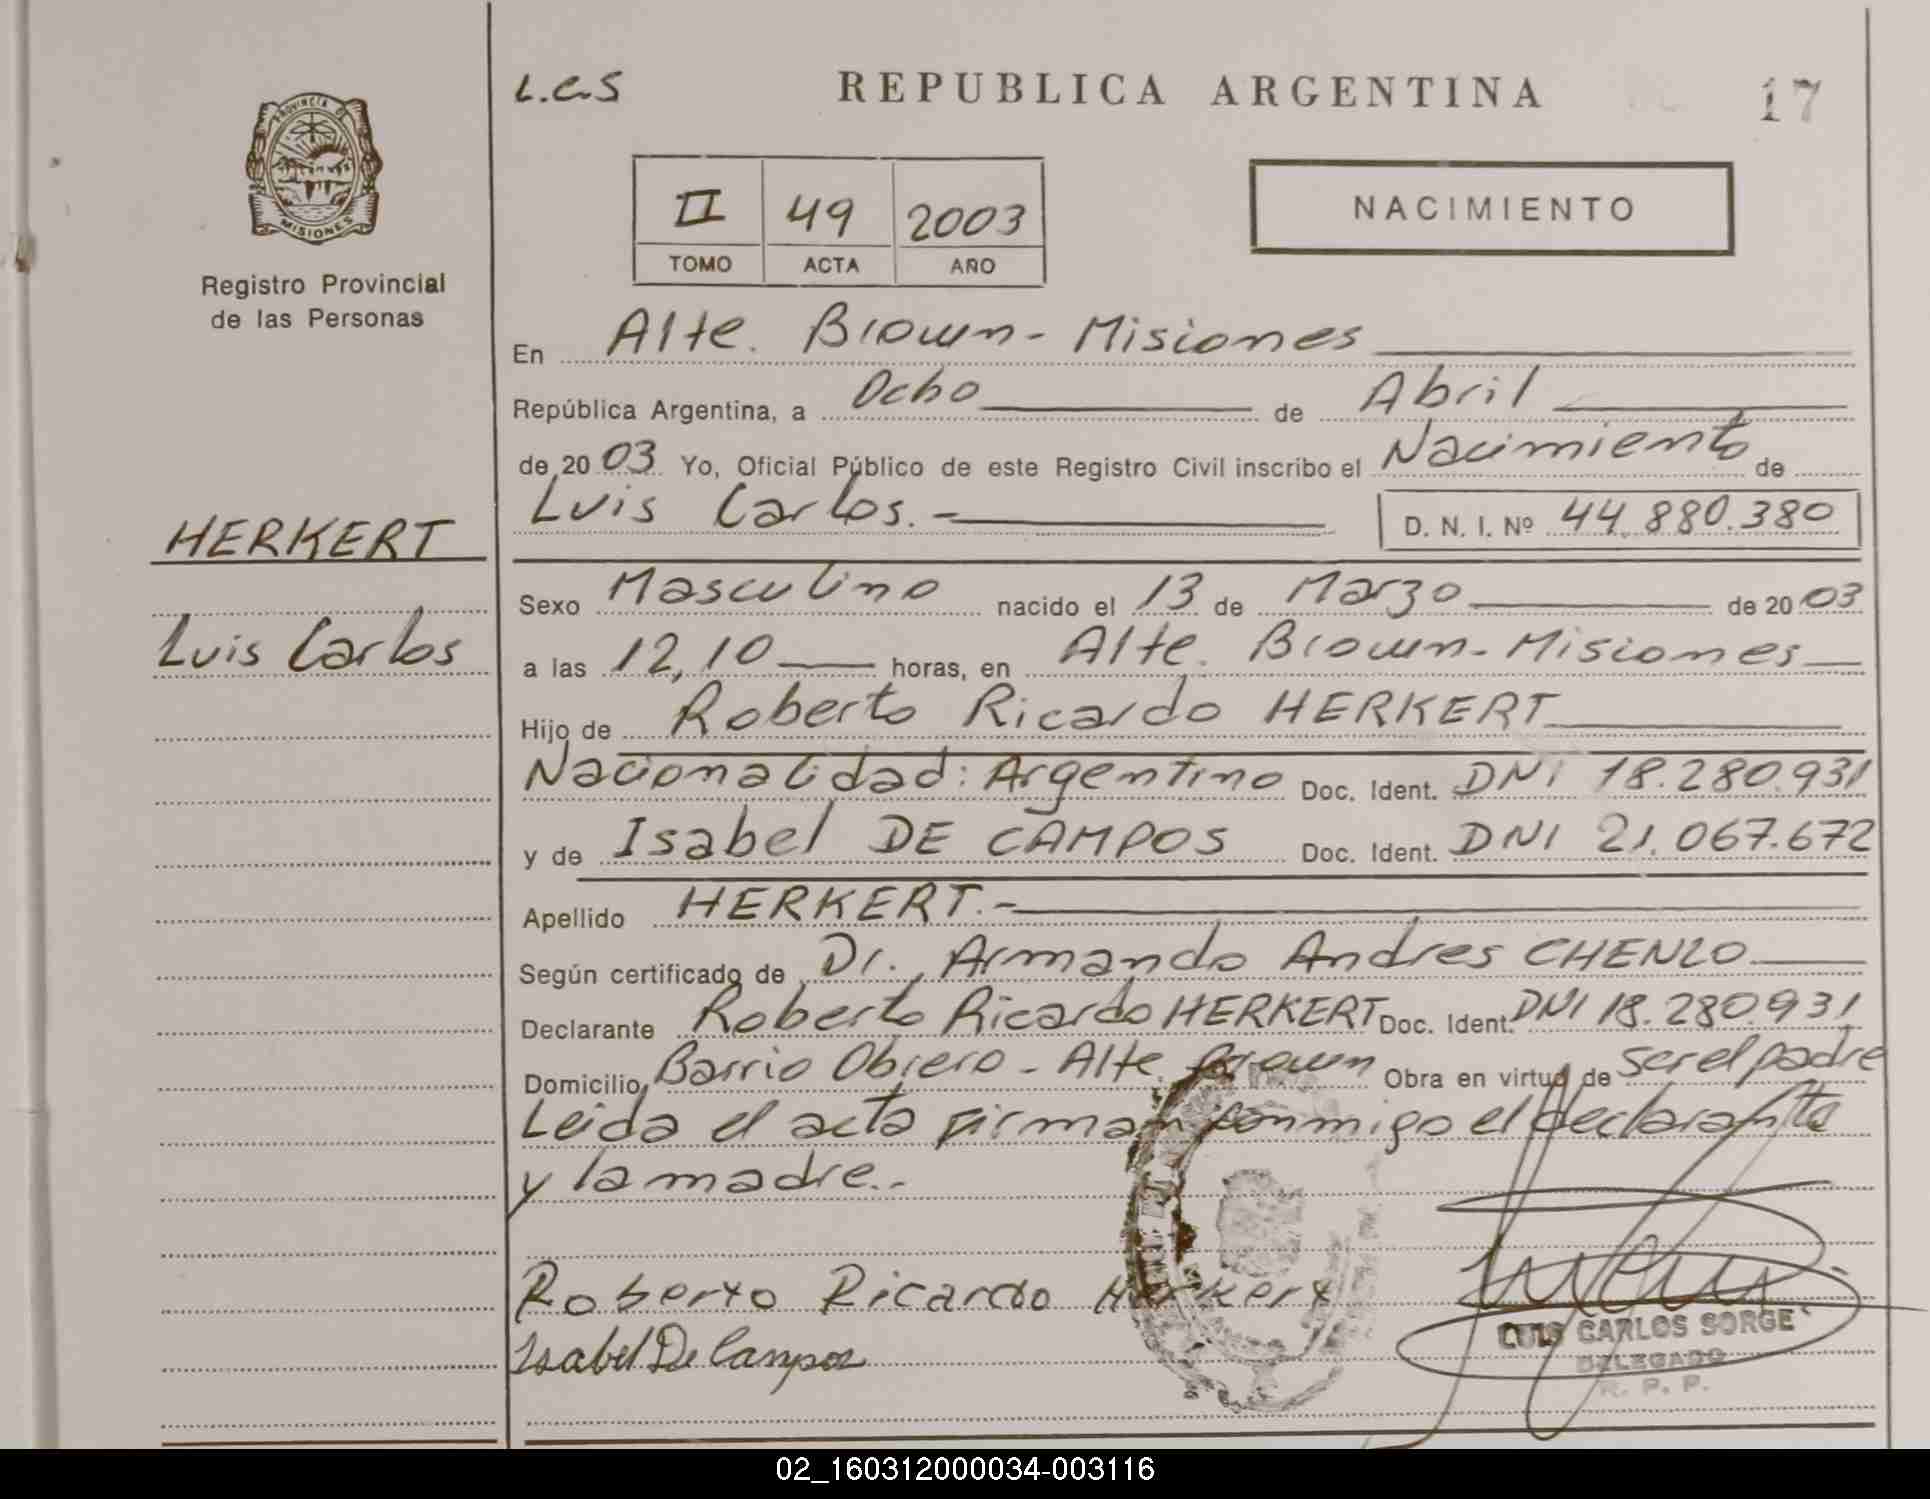 L.C.S
REPUBLICA ARGENTINA
17
PROVINCIA DE
MISIONES
Registro Provincial
de las Personas
II 49 2003
TOMO ACTA AÑO
NACIMIENTO
En Alte. Brown - Misiones
República Argentina, a Ocho de Abril
de 20 03 Yo, Oficial Público de este Registro Civil inscribo el Nacimiento de
Luis Carlos.- D. N. I. Nº 44.880.380
HERKERT
Luis Carlos
Sexo Masculino nacido el 13 de Marzo de 20 03
a las 12,10 horas, en Alte. Brown - Misiones
Hijo de Roberto Ricardo HERKERT
Nacionalidad: Argentino Doc. Ident. DNI 18.280.931
y de Isabel DE CAMPOS Doc. Ident. DNI 21.067.672
Apellido HERKERT.-
Según certificado de Dr. Armando Andres
Declarante Roberto Ricardo HERKERT Doc. Ident. DNI 18.280.931
Domicilio Barrio Obrero - Alte. Brown Obra en virtud de ser el padre
Leida el acta firman conmigo el declarante
y la madre..
Roberto Ricardo Herkert
Isabel De Campos
LUIS CARLOS SORGE
DELEGADO
R. P. P.
02_160312000034-003116